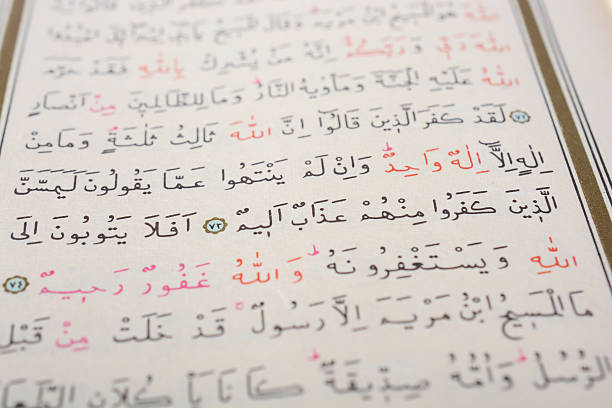 اللّٰهَ هُوَ الْمَسِيحُ ابْنُ مَرْيَمَ وَقَالَ الْمَسِيحُ
اللّٰهَ رَبِّي وَرَبَّكُمْ اِنَّهُ مَنْ يُشْرِكْ بِاللّٰهِ فَقَدْ حَرَّمَ
اللّٰهُ عَلَيْهِ الْجَنَّةَ وَمَأْوٰيهُ النَّارُ وَمَا لِلظَّالِمِينَ مِنْ اَنْصَارٍ
٧٢ لَقَدْ كَفَرَ الَّذِينَ قَالُوا اِنَّ اللّٰهَ ثَالِثُ ثَلٰثَةٍ وَمَا مِنْ
اِلٰهٍ اِلَّا اِلٰهٌ وَاحِدٌ وَاِنْ لَمْ يَنْتَهُوا عَمَّا يَقُولُونَ لَيَمَسَّنَّ
الَّذِينَ كَفَرُوا مِنْهُمْ عَذَابٌ اَلِيمٌ ٧٣ اَفَلَا يَتُوبُونَ اِلَى
اللّٰهِ وَيَسْتَغْفِرُونَهُ وَاللّٰهُ غَفُورٌ رَحِيمٌ ٧٤
مَا الْمَسِيحُ ابْنُ مَرْيَمَ اِلَّا رَسُولٌ قَدْ خَلَتْ مِنْ قَبْلِ
الرُّسُلُ وَاُمُّهُ صِدِّيقَةٌ كَانَا يَأْكُلَانِ الطَّعَا